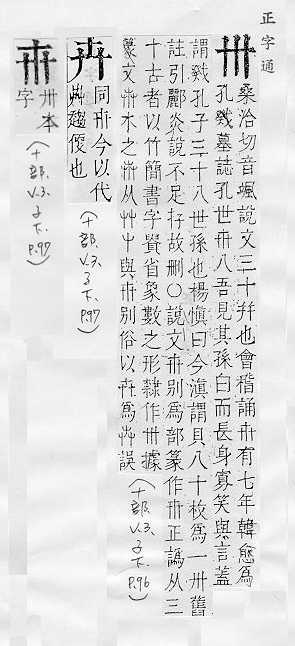 正字通
卅 桑洽切音颯說文三十幷也會稽誦卅有七年韓愈爲
孔戣墓誌孔世卅八吾見其孫白而長身寡笑與言蓋
謂戣孔子三十八世孫也楊愼曰今滇謂貝八十枚爲一卅舊
註引酈炎說不足存故刪○說文卅別爲部篆作卅正譌从三
十古者以竹簡書字贊省象數之形隸作卅據
篆文艸木之艸从艸屮與卅別俗以卋爲艸誤
(十部, V.3, 子下, P.96)
卉 同卅今以代
艸趨便也
(十部, V.3, 子下, P.97)
卅本
字
(十部, V.3, 子下, P.97)